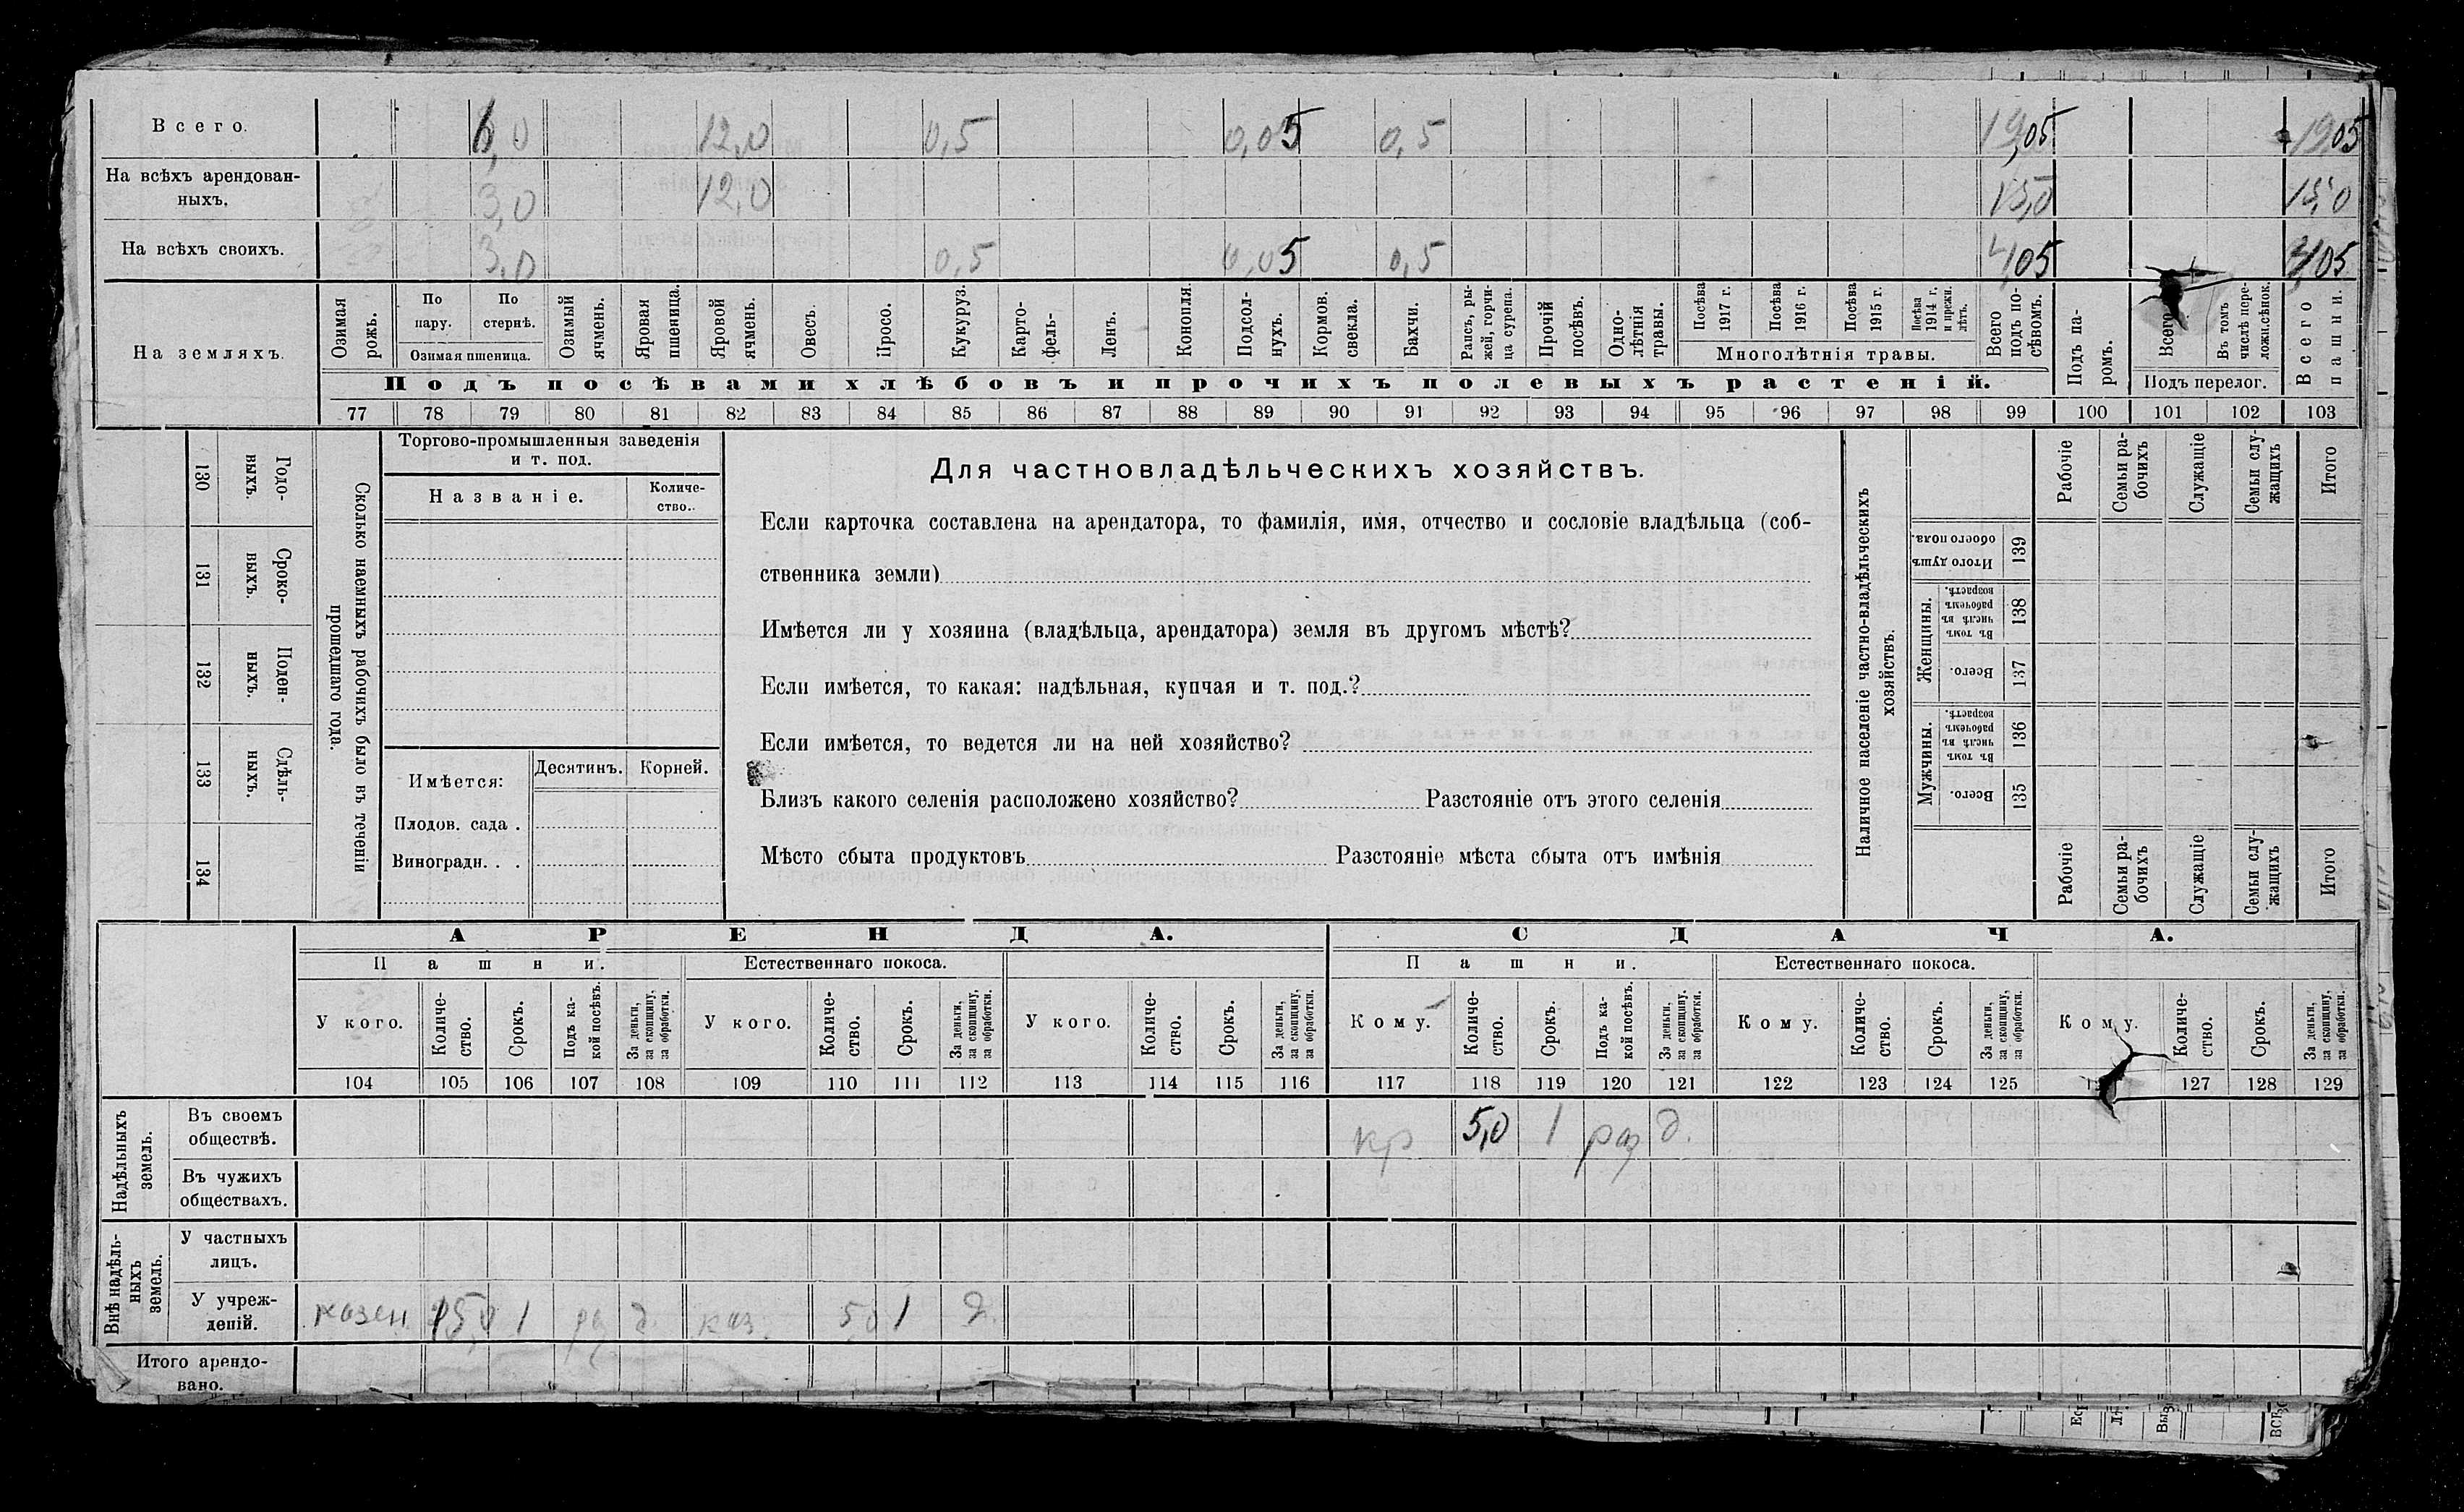 Всего. 6,0 12,0 0,5 0,05 0,5 19,05 19,05
На всѣхъ арендован-
ныхъ. 3,0 12,0 15,0 15,0
На всѣхъ своихъ. 3,0 0,5 0,05 0,5 4,05 4,05
На земляхъ.
Озимая рожь.
По пару.
По стернѣ.
Озимая пшеница.
Озимый ячмень.
Яровая пшеница.
Яровой ячмень.
Овесъ.
Просо.
Кукуруз.
Карто-
фель-
Ленъ.
Конопля.
Подсол-
нухъ.
Кормов. свекла.
Бахчи.
Рапсъ, ры-
жей, горчи-
ца сурепа.
Прочій посѣвъ.
Одно-
лѣтнія травы.
Посѣва 1917 г.
Посѣва 1916 г.
Посѣва 1915 г.
Посѣва 1914 г. и прежн. лѣтъ.
Многолѣтнія травы.
Всего подъ по-
сѣвомъ.
Подъ па-
ромъ.
Всего
Въ томъ числѣ пере-
ложн.сѣнок.
Подъ перелог.
Всего пашни.
Подъ посѣвами хлѣбовъ и прочихъ полевыхъ растеній.
77 78 79 80 81 82 83 84 85 86 87 88 89 90 91 92 93 94 95 96 97 98 99 100 101 102 103
130 Годо-
ныхъ.
131 Сроко-
ныхъ.
132 Поден-
ныхъ.
133 Сдѣль-
ныхъ.
134
Сколько наемныхъ рабочихъ было въ теченіи
прошедшаго года.
Торгово-промышленныя заведенія
и т. под.
Названіе.
Количе-
ство.
Имѣется:
Десятинъ.
Корней.
Плодов. сада .
Виноградн. . .
Для частновладѣльческихъ хозяйствъ.
Если карточка составлена на арендатора, то фамилія, имя, отчество и сословіе владѣльца (соб-
ственника земли)
Имѣется ли у хозяина (владѣльца, арендатора) земля въ другомъ мѣстѣ?
Если имѣется, то какая: надѣльная, купчая и т. под.?
Если имѣется, то ведется ли на ней хозяйство?
Близъ какого селенія расположено хозяйство? Разстояніе отъ этого селенія
Мѣсто сбыта продуктовъ Разстояніе мѣста сбыта отъ имѣнія
Наличное населеніе частно-владѣльческихъ
хозяйствъ.
Рабочіе
Семьи ра-
бочихъ
Служащіе
Семьи слу-
жащихъ
Итого
Итого душъ обоего пола. 139
Женщины.
Въ томъ числѣ въ рабочемъ возрастѣ. 138
Всего. 137
Мужчины.
Въ томъ числѣ въ рабочемъ возрастѣ. 136
Всего. 135
Рабочіе
Семьи ра-
бочихъ
Служащіе
Семьи слу-
жащихъ
Итого
АРЕНДА. СДАЧА.
Пашни. Естественнаго покоса. Пашни. Естественнаго покоса.
У кого.
Количе-
ство.
Срокъ.
Подъ ка-
кой посѣвъ.
За деньги, за скопщину, за обработки.
У кого.
Количе-
ство.
Срокъ.
За деньги, за скопщину, за обработки.
У кого.
Количе-
ство.
Срокъ.
За деньги, за скопщину, за обработки.
Кому.
Количе-
ство.
Срокъ.
Подъ ка-
кой посѣвъ.
За деньги, за скопщину, за обработки.
Кому.
Количе-
ство.
Срокъ.
За деньги, за скопщину, за обработки.
Кому.
Количе-
ство.
Срокъ.
За деньги, за скопщину, за обработки.
104 105 106 107 108 109 110 111 112 113 114 115 116 117 118 119 120 121 122 123 124 125 127 128 129
Надѣльныхъ земель.
Въ своемъ
обществѣ. кр 5,0 1 раз д.
Въ чужихъ
обществахъ.
Внѣ надѣль-
ныхъ земель.
У частныхъ
лицъ.
У учреж-
деній. казен. 15,0 1 раз д. каз. 5,0 1 д.
Итого арендо-
вано.